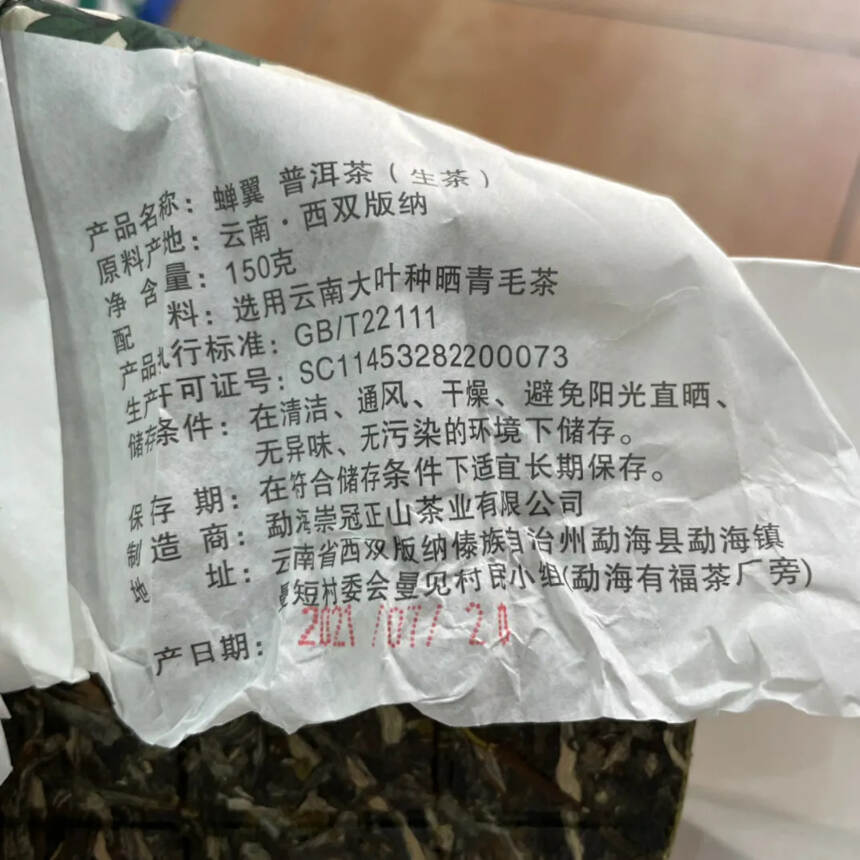 产品名称：蝉翼 普洱茶（生茶）
原料产地：云南·西双版纳
净含量：150克
配料：选用云南大叶种晒青毛茶
产品执行标准：GB/T22111
生产许可证号：SC11453282200073
储存条件：在清洁、通风、干燥、避免阳光直晒、
无异味、无污染的环境下储存。
保存期：在符合储存条件下适宜长期保存。
制造商：勐海崇冠正山茶业有限公司
地址：云南省西双版纳傣族自治州勐海县勐海镇
曼短村委会曼见村民小组(勐海有福茶厂旁)
产日期：2021/07/20